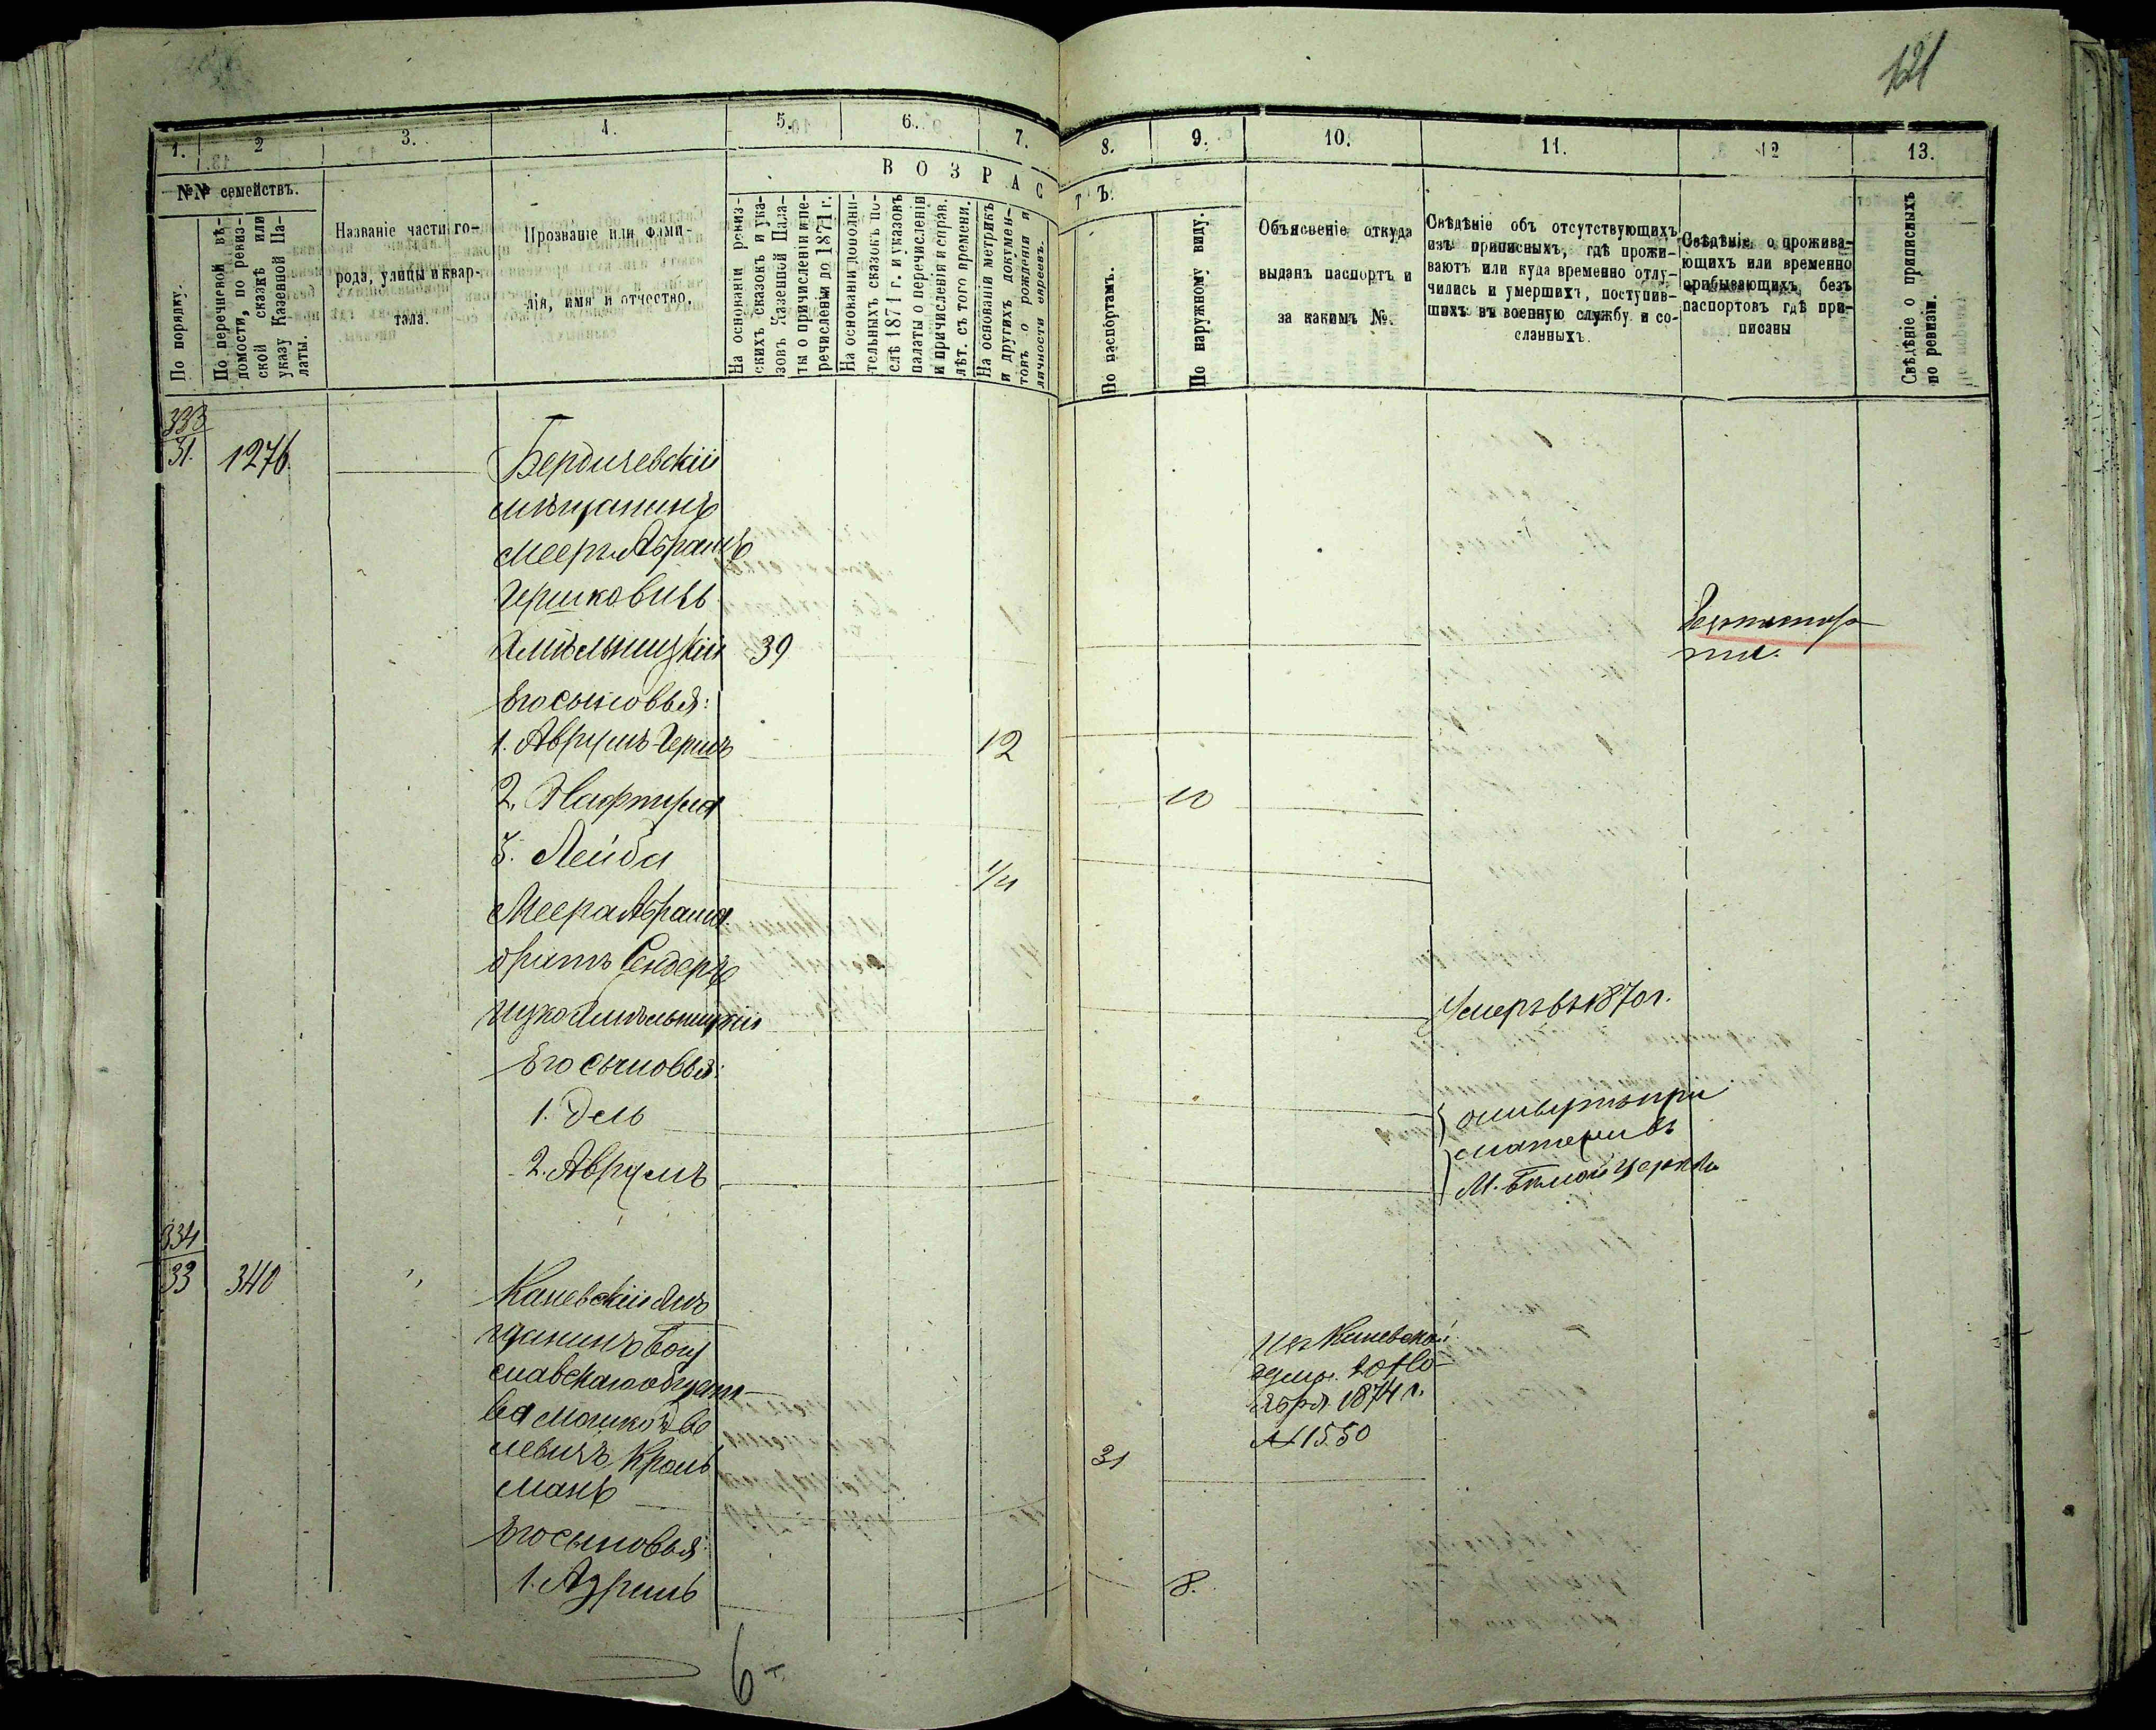 121
1. 2 3. 4. 5. 6. 7. 8. 9. 10. 11. 12 13.
№№ семействъ.
По порядку.
По перечневой вѣ-
домости, по ревиз-
ской сказкѣ или
указу Казенной Па-
латы.
Названіе части го-
рода, улицы и квар-
тала.
Прозваніе или фами-
лія, имя и отчество.
ВОЗРАСТЪ.
На основаніи ревиз-
скихъ сказокъ и ука-
зовъ Казенной Пала-
ты о причисленіи и пе-
речисленіи до 1871 г.
На основаніи дополни-
тельныхъ сказокъ по-
слѣ 1871 г. и указовъ
палаты о перечисленіи
и причисленіи и справ.
лѣт. съ того времени.
На основаніи метрикъ
и другихъ докумен-
товъ о рожденіи и
личности евреевъ.
По паспортамъ.
По наружному виду.
Объясненіе откуда
выданъ паспортъ и
за какимъ №.
Свѣдѣніе объ отсутствующихъ
изъ приписныхъ, гдѣ прожи-
ваютъ или куда временно отлу-
чились и умершихъ, поступив-
шихъ въ военную службу и со-
сланныхъ.
Свѣдѣніе о прожива-
ющихъ или временно
прибывающихъ безъ
паспортовъ гдѣ при-
писаны
Свѣдѣніе о приписныхъ
по ревизіи.
333
31. 1276. Бердичевскій
мѣщанинъ
Мееръ Абрамъ
Гершковичъ
Хмѣльницкій 39
Его сыновья:
1. Аврумъ-Гершъ 12
2. Нафтула 10
3. Лейба 1/4
Меера Абрама
братъ Сендеръ
Ицко Хмѣльницкій Умеръ въ 1870 г.
Его сыновья:
1. Эль
2. Аврумъ
матери въ
М. Бѣлой Церкви
334
33 340 Каневскій мѣ
щанинъ Богу
славскаго общест-
ва Мошко
левичъ Кроль
манъ 31
Изъ Каневской
думы 20 Но-
ября 1874 г.
№ 1550
Его сыновья:
1. Азриль 8.
6